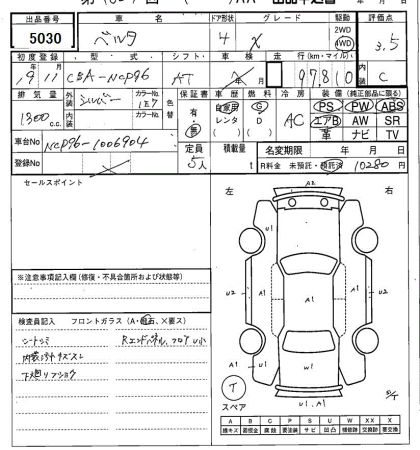 出品番号 車名 ドア形状 グレード 駆動 評価点
5030 ベルタ 4 X 2WD 4WD 3.5
初度登録 型式 シフト 車検 走行(km・マイル) 内装
19年11月 CBA-NCP96 AT 年 月 97,810 C
排気量 外装 シルバー カラーNo. 1E7 色替 保証書 車歴 燃料 冷房 装備(純正部品に限る)
1300 c.c. 内装 カラーNo. 有・無 自家用 レンタ G D AC PS PW ABS
エアB AW SR
革 ナビ TV
車台No NCP96-1006904 定員 5人 積載量 t 名変期限 年 月 日
登録No R料金 未預託・預託済 10280円
セールスポイント
左 右
A2
U1
A1
U2 A1 A1 U2
A1 U1 W1
U1,A1
スペア
※注意事項記入欄(修復・不具合箇所および状態等)
検査員記入 フロントガラス(A・飛石、×要ス)
シートシミ Rエンドパネル、フロアU小
内装
下廻りフショク
A B C P S U W XX X
線キズ 要板金 腐蝕 要塗装 サビ 凹凸 補修跡 交換跡 要交換